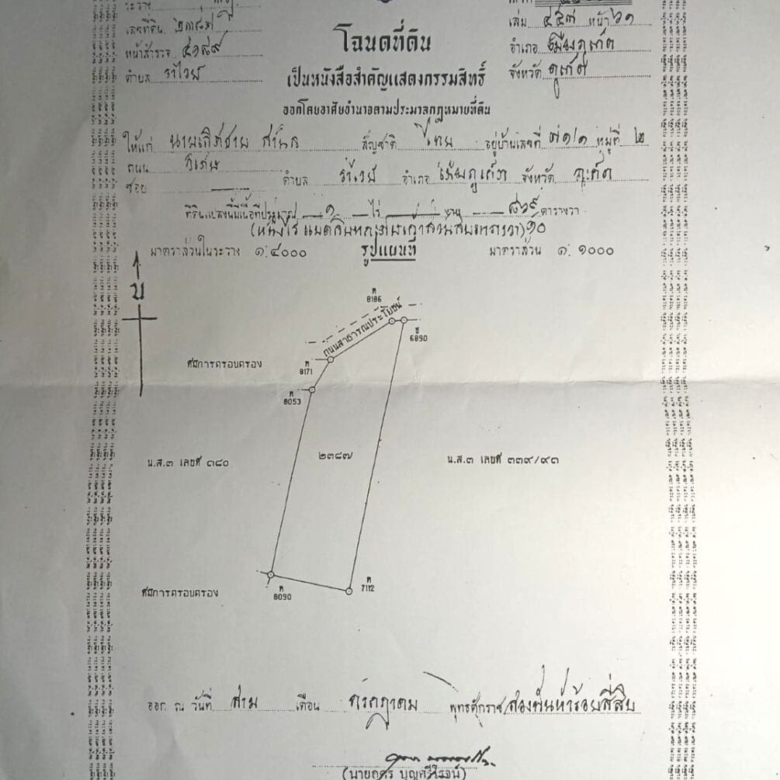 ระวาง
เลขที่ดิน ๒๓๘๗
เล่ม ๔๕๗ หน้า ๖๑
หน้าสำรวจ ๔๑๙๙
โฉนดที่ดิน
อำเภอ เมืองภูเก็ต
ตำบล ราไวย์
เป็นหนังสือสำคัญแสดงกรรมสิทธิ์
จังหวัด ภูเก็ต
ออกโดยอาศัยอำนาจตามประมวลกฎหมายที่ดิน
ให้แก่ สัญชาติ ไทย อยู่บ้านเลขที่ หมู่ที่ ๒
ถนน วิเศษ
ซอย ตำบล ราไวย์ อำเภอ เมืองภูเก็ต จังหวัด ภูเก็ต
ที่ดินแปลงนี้มีเนื้อที่ประมาณ ๑ ไร่ งาน ตารางวา
มาตราส่วนในระวาง ๑:๔๐๐๐ รูปแผนที่ มาตราส่วน ๑:๑๐๐๐
น
ค
8186
ถนนสาธารณประโยชน์
ช
6890
ค
8171
ที่มีการครอบครอง
ค
8053
๒๓๘๗
น.ส.๓ เลขที่ ๑๘๐
น.ส.๓ เลขที่ ๓๓๙/๙๓
ที่มีการครอบครอง
ค
8090
ค
7112
ออก ณ วันที่ สาม เดือน กรกฎาคม พุทธศักราช สองพันห้าร้อยสี่สิบ